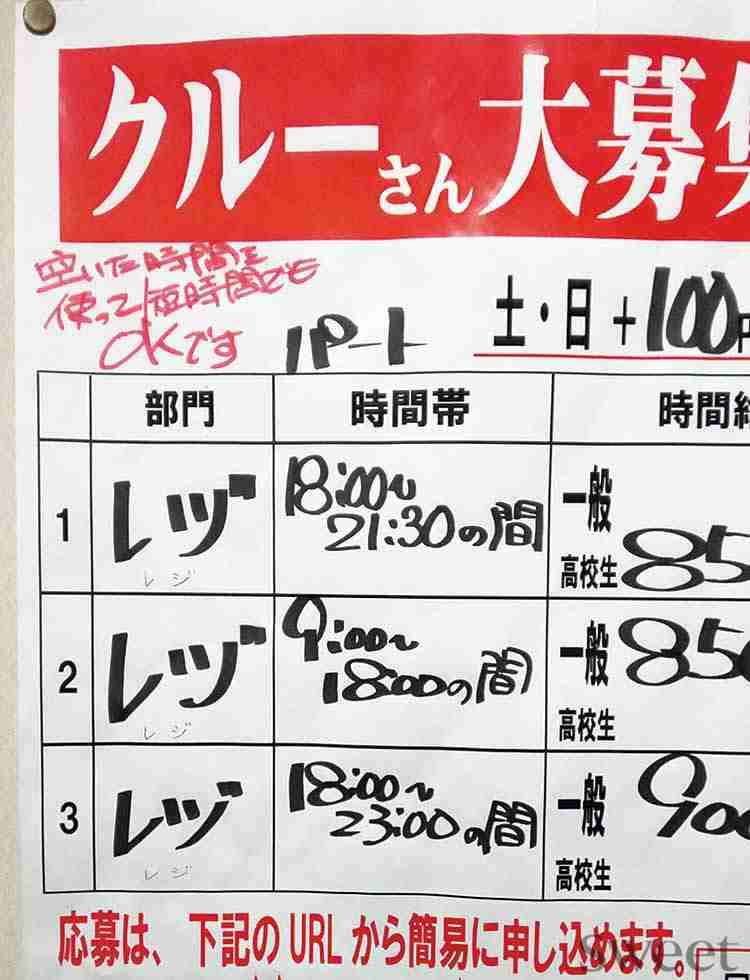 クルーさん大募
空いた時間を
使って短時間でも
OKです
パート
土・日+100円
部門
時間帯
時間
1
レヅ
レジ
18:00~
21:30の間
一般
高校生
85
2
レヅ
レジ
9:00~
18:00の間
一般
850
高校生
3
レヅ
レジ
18:00~
23:00の間
一般
900
高校生
応募は、下記のURLから簡易に申し込めます。
sweet